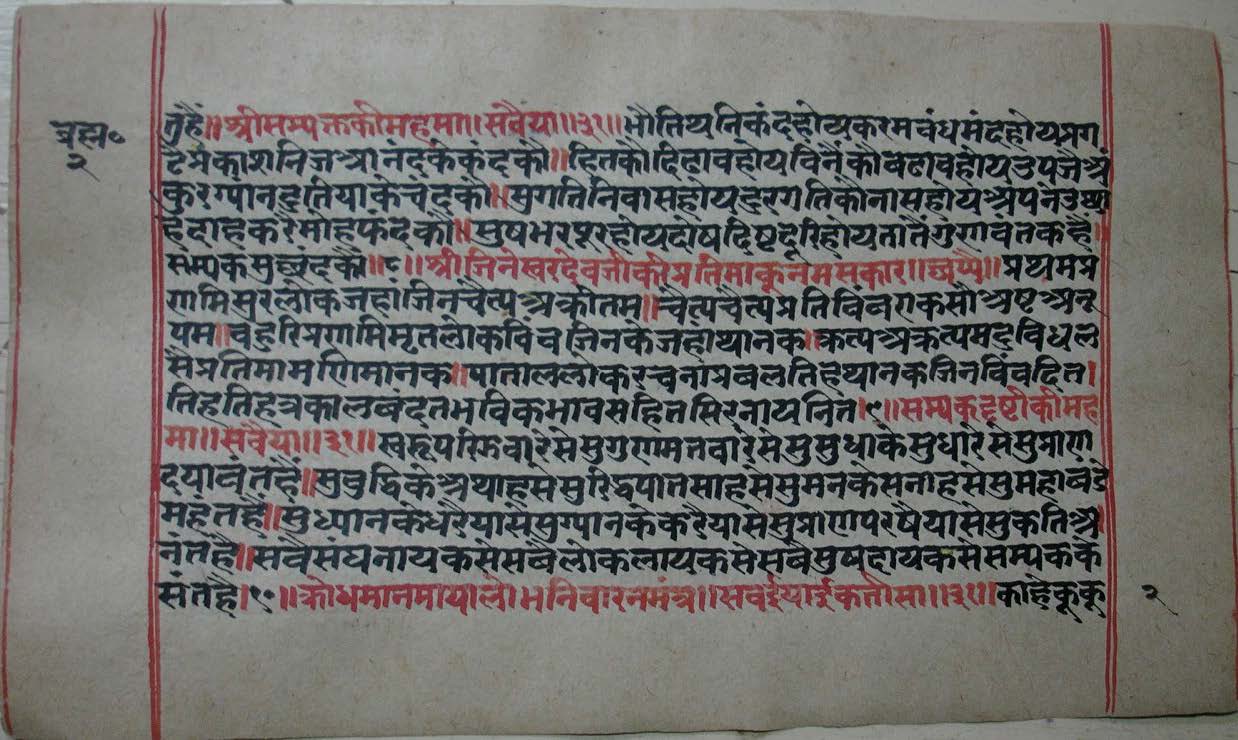 ब्रह्म॰
२
तुहैं॥श्रीसम्यक्तकीमहमा॥सवैया॥३१॥भौतिथनिकंदहोयकरमबंधमंदहोयप्रग
टैप्रकाशनिजआनंदकेकंदकौ॥हितकौदिढावहोयविनैकौबढावहोयउपजैअं
कुरग्यानदुतियाकेचंदकौ॥सुगतिनिवासहोयदुरगतिकौनासहोयअपनेउछा
हदाहकरैमोहफंदकौ॥सुषभरपूरहोयदोषदिष्टदूरिहोययातैगुणवंतकहैं॥
संम्यकसुछंदकौं॥८॥श्रीजिनेस्वरदेवजीकीप्रतिमाकूंनमसकार॥छप्पै॥प्रथमप्र
णमिसुरलोकजहांजिनचैत्यअक्रीतम॥चैत्यचैत्यप्रतिविंवएकसौअष्टअनू
पम॥बहुरिप्रणमिमृतलोकविंवजिनकेजहांथानक॥क्रत्यअक्रत्यमदुविधल
सैप्रतिमामणिमानक॥पाताललोकरचनाप्रवलतिहेथानकजिनविंवदित।
तिहतिहत्रकालबंदतभविकभावसहितसिरनायनित।९॥सम्यकद्दष्टीकीमह
मा॥सवैया॥३१॥स्वरूपरिझवारेसेसुगुणमतवारेसेसुसुधाकेसुधारेसेसुप्राण
दयावंतहैं॥सुबुद्धिकेअथाहसेसुरिद्धपातसाहसेसुमनकेसनाहसेसुमहावडे
महंतहैं॥सुध्यानकेधरैयासेसुग्यानकेकरैयासेसुप्राणपरषैयासेसुकतिअ
नंतहै॥सवैसंघनायकसेसबैलोकलायकसेसबैसुषदायकसेसम्यकके
संतहै।१०॥क्रोधमानमायालोभनिवारनमंत्र॥सवईयाईकतीसा॥३१॥काहेकूकू
२